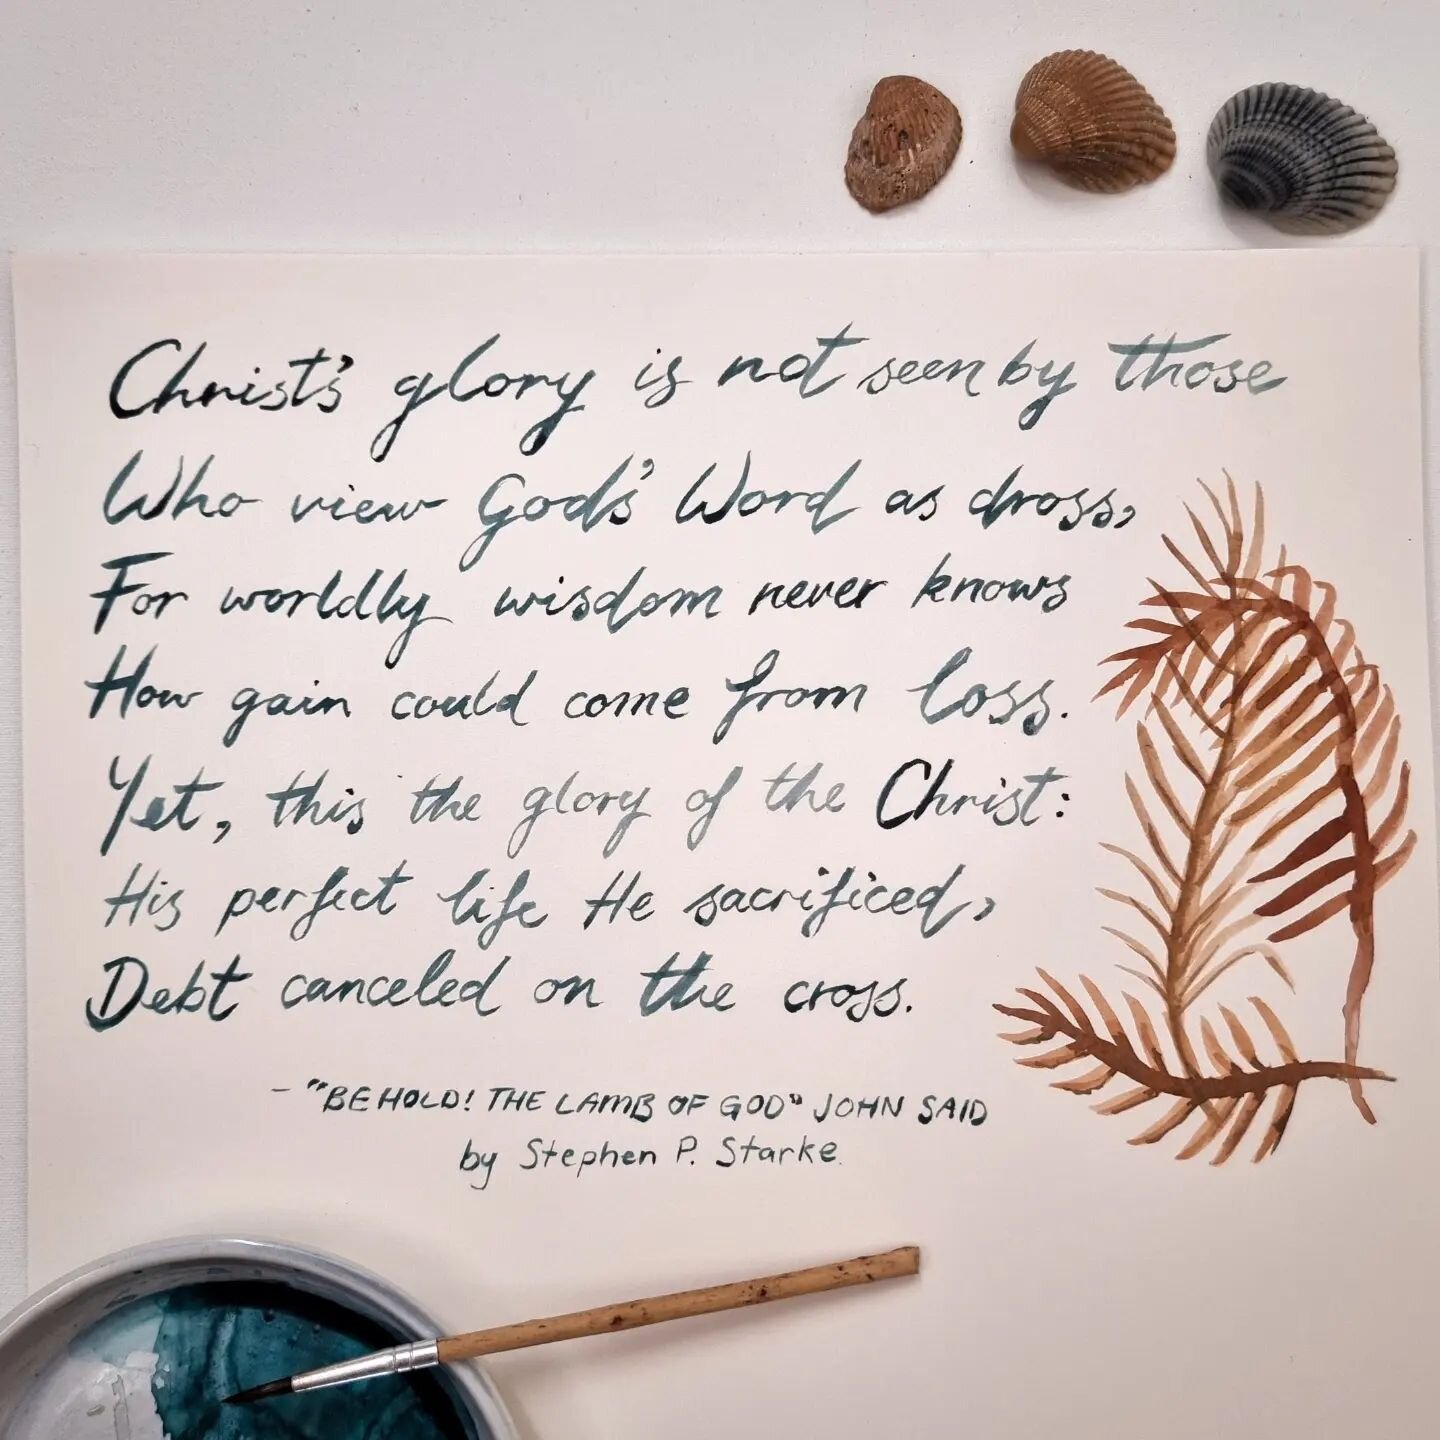 Christ's glory is not seen by those
Who view God's Word as dross,
For worldly wisdom never knows
How gain could come from loss.
Yet, this the glory of the Christ:
His perfect life He sacrificed,
Debt canceled on the cross.
- "BEHOLD! THE LAMB OF GOD" JOHN SAID
by Stephen P. Starke.